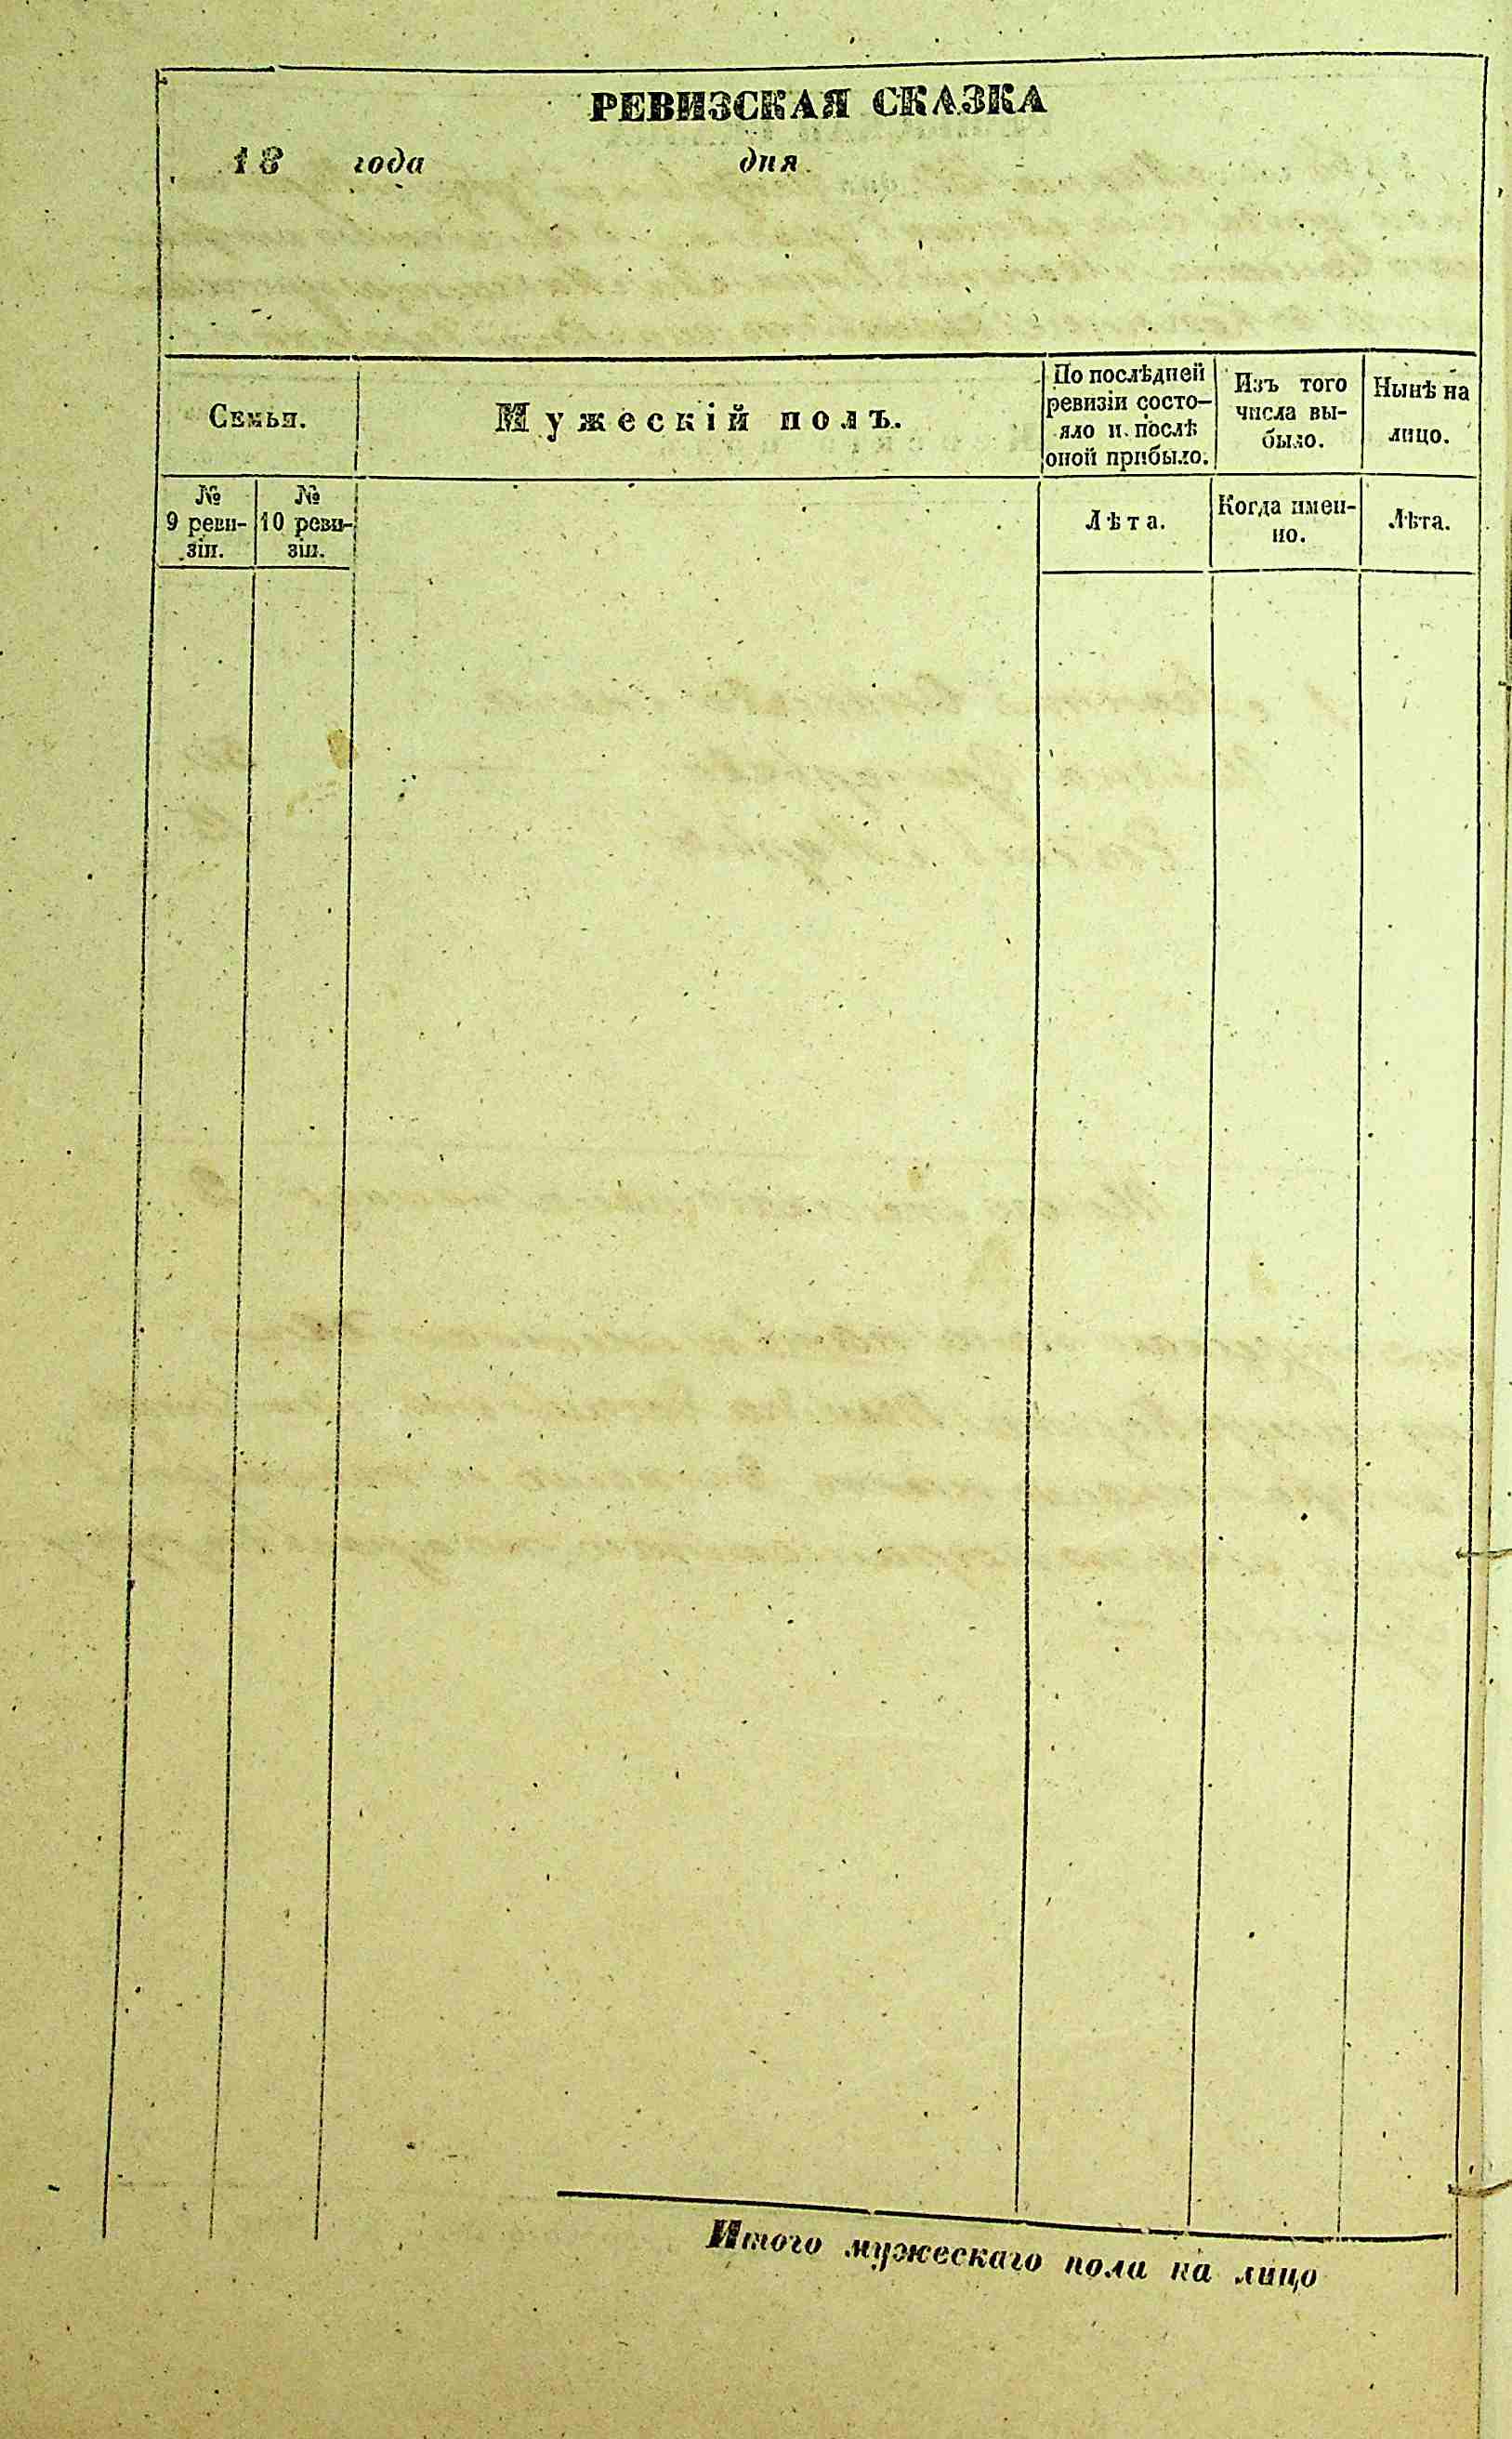 РЕВИЗСКАЯ СКАЗКА
18 года дня
Семья.
Мужескій полъ.
По послѣдней
ревизіи состо-
яло и послѣ
оной прибыло.
Изъ того
числа вы-
было.
Нынѣ на
лицо.
№
9 реви-
зіи.
№
10 реви-
зіи.
Лѣта.
Когда имен-
но.
Лѣта.
Итого мужескаго пола на лицо